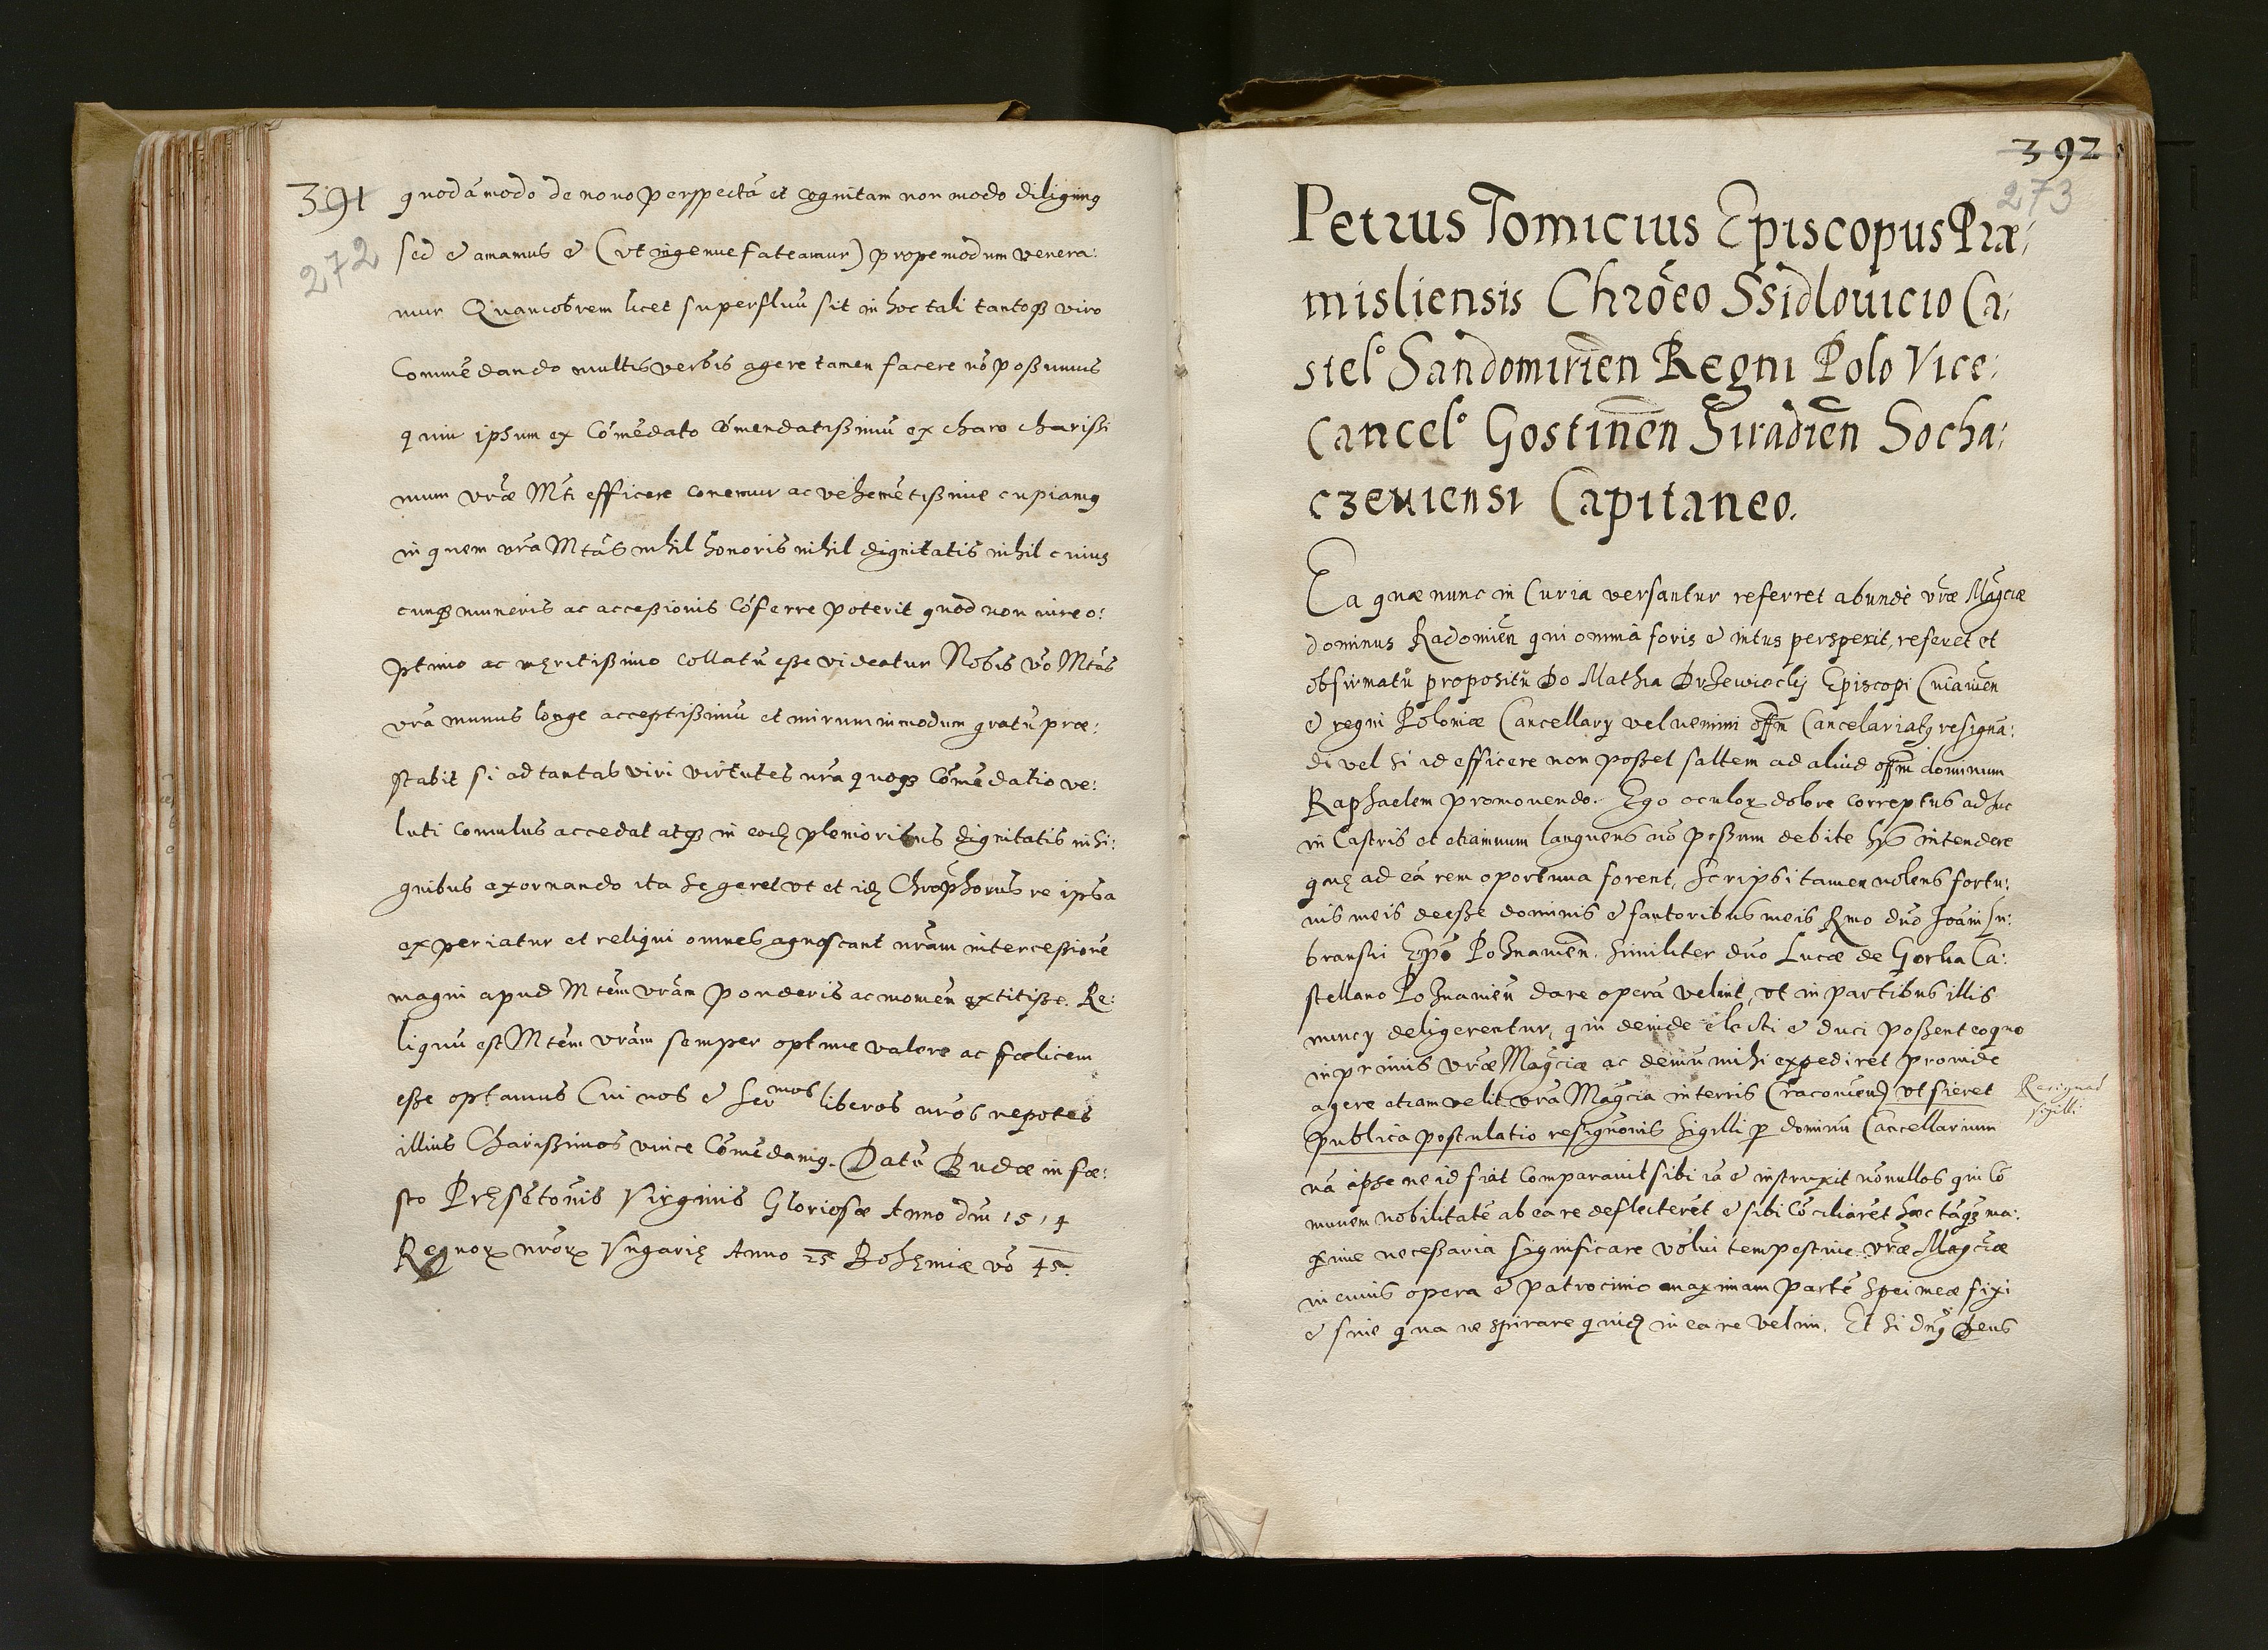 391
272
quodāmodo de nouo perspectā et cognitam non modo diligimꝰ
sed & amamus & (vt ingenue fateamur) propemodum venera:
mur Quamobrem licet superfluū sit in hoc tali tantoqȝ viro
Commēdando multis verbis agere tamen facere nō poßumus
quin ipsum ex Cōmēdato Cōmendatißimū ex charo charißi
mum vrāe Mti efficere conemur ac vehemētißime cupiamꝰ
in quem vrā Mtās nihil honoris nihil dignitatis nihil cuius
cunqȝ muneris ac acceßionis Cōferre poterit quod non iure o:
ptimo ac meritißimo collatū eße videatur Nobis vō Mtās
vrā munus longe acceptißimū et mirum in modum gratū præ:
stabit si ad tantas viri virtutes nrā quoqȝ Cōmēdatio ve:
luti comulus accedat atqȝ in eod plenioribus dignitatis insi:
gnibus exornando ita se geret vt et id Chrōphorus re ipsa
experiatur et reliqui omnes agnoscant nrām intercessionē
magni apud Mtēm vrām ponderis ac momēn extitiße. Re:
liquū est Mtēm vrām semper optime valere ac fœlicem
eße optamus Cui nos & Sermos liberos nrōs nepotes
illius Charißimos vnice Cōmēdamꝰ. Datū Budæ in fæ:
sto Pręsētoīnis Virginis Gloriosæ Anno dnī 1514
Regnorꝝ nrōrꝝ Vngarię Anno 25 Bohęmiæ vō 45.
392
273
Petrus Tomicius Episcopus Præ:
misliensis Chrōeo Ssidlouicio Ca:
stel° Sandomiriēn Regni Polo Vice:
cancel° Gostinēn Siradiēn Socha:
czeuiensi Capitaneo.
Ea quæ nunc in Curia versantur referret abunde vrāe Magciæ
dominus Radomiēn qui omnia foris & intus perspexit, referet et
obfirmatū propositū Do Mathia Drzewiockij Episcopi Cuiauiēn
& regni Poloniæ Cancellarij vel offm Cancelariatꝰ resigna:
di vel si id efficere non poßet saltem ad aliud offm dominum
Raphaelem promouendo. Ego oculorꝝ dolore correptus adhuc
in Castris et etiamnum languens nō poßum debite his intendere
quę ad eā rem oportuna forent, Scripsi tamen nolens fortu:
nis meis deeße dominis & fautoribus meis Rmo dnō Joāni Lu:
branski Epō Poznaniēn. Similiter dnō Lucæ de Gorka Ca:
stellano Poznaniēn dare operā velint, vt in partibus illis
nuncij deligerentur, qui deinde electi & duci poßent eo quo
inprimis vrāe Magciæ ac demū mihi expediret proinde
agere etiam velit vrā Magcia in terris Cracouiēn vt fieret
publica postulatio resignonis Sigilli p dominū Cancellarium
nā ipse ne id fiat comparauit sibi iā & instruxit nōnullos qui cō
munem nobilitatē ab ea re deflecterēt & sibi Cōciliarēt hæc tāqȝ ma:
xime neceßaria significare volui tempestiue vrāe Magciæ
in cuius opera & patrocinio maximam partē spei meæ fixi
& sine qua ne spirare quid in ea re velim. Et si dnꝰ Deus
Resignad
sigilli